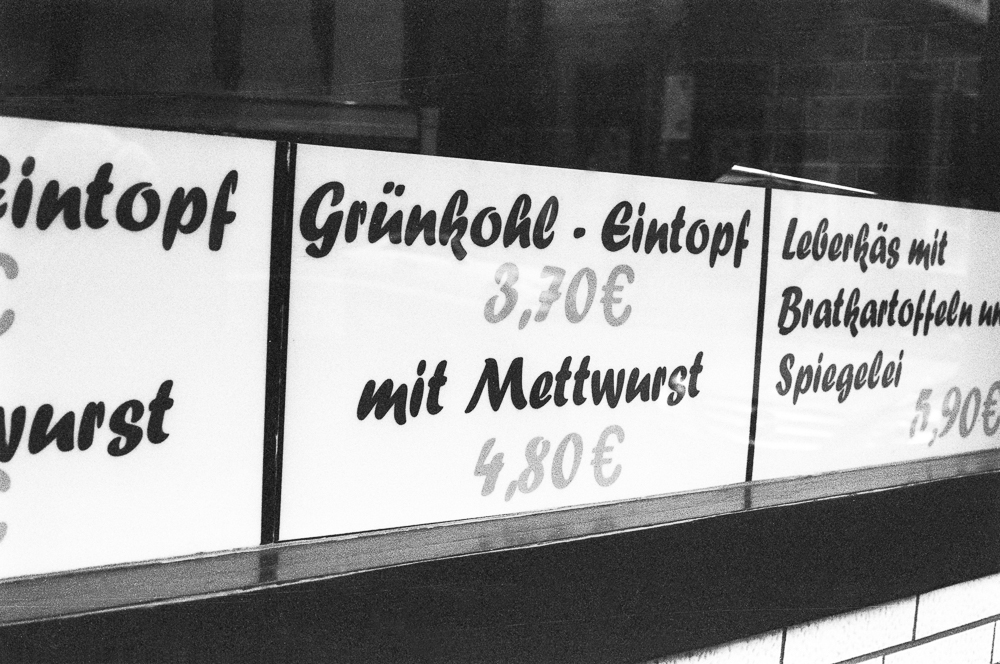 Eintopf
€
wurst
€
Grünkohl - Eintopf
3,70€
mit Mettwurst
4,80€
Leberkäs mit
Bratkartoffeln
Spiegelei
5,90€